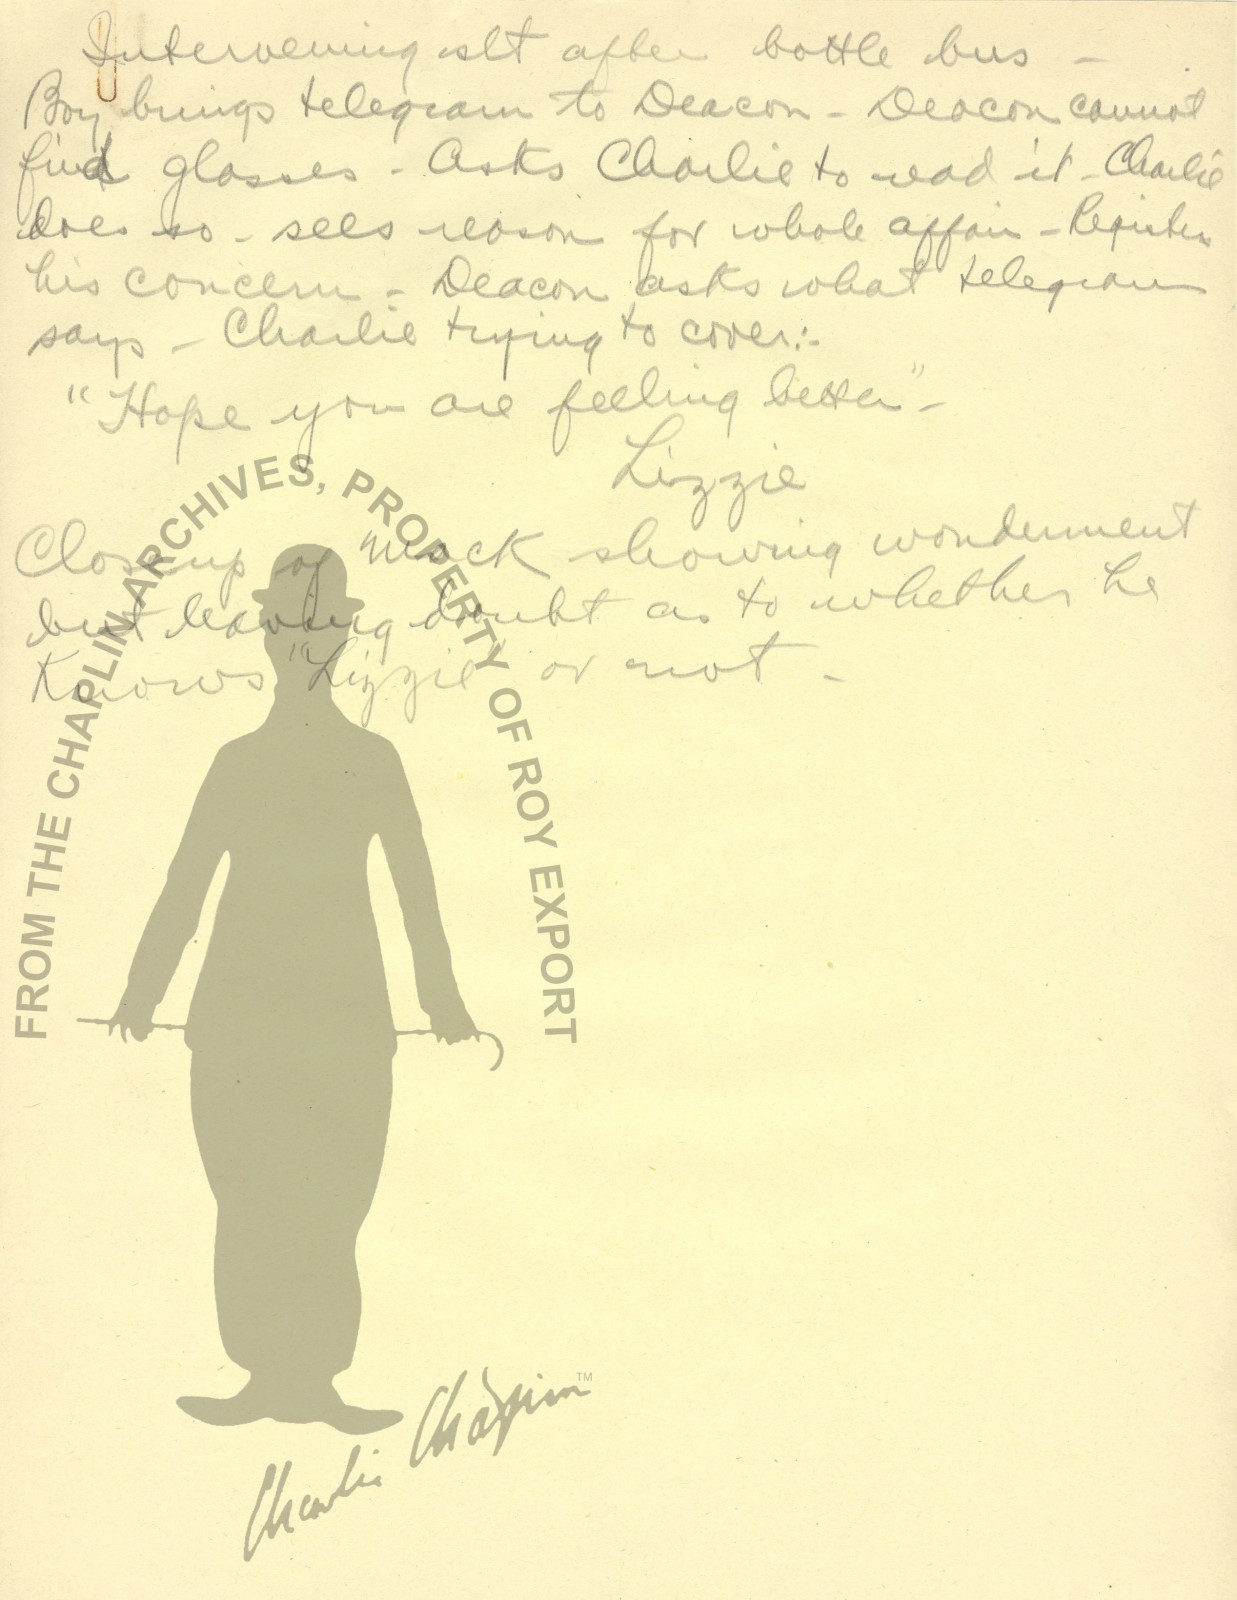 Intervening slt after bottle bus -
Boy brings telegram to Deacon - Deacon cannot
find glasses - Asks Charlie to read it - Charlie
does so - sees reason for whole affair - Register
his concern - Deacon asks what telegram
says - Charlie trying to cover:-
"Hope you are feeling better" -
Lizzie
Closeup of Mack showing wonderment
but leaving doubt as to whether he
Knows "Lizzie" or not -
FROM THE CHAPLIN ARCHIVES, PROPERTY OF ROY EXPORT
Charlie Chaplin TM